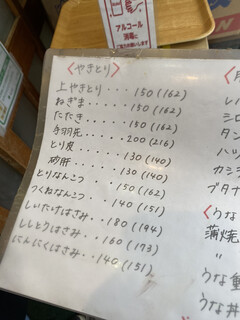 アルコール
消毒に
<やきとり>
上やきとり・・・150(162)
ねぎま・・・・・150(162)
たたき・・・・・150(162)
手羽先・・・・・200(216)
とり皮・・・・・130(140)
砂肝・・・・・・130(140)
とりなんこつ・・150(162)
つくねなんこつ・140(151)
しいたけはさみ・・180(194)
ししとうはさみ・・160(173)
にんにくはさみ・・140(151)
レバ
シロ
タン
ハツ
カシラ
ブタナ
<うな
蒲焼
〃
うな重
うな丼